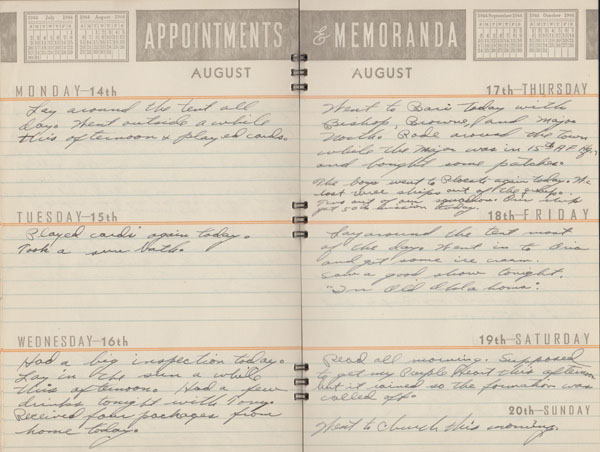 1944 July 1944
1944 August 1944
APPOINTMENTS
AUGUST
MONDAY—14th
Lay around the tent all
day. Went outside a while
this afternoon & played cards.
TUESDAY—15th
Played cards again today.
Took a sun bath.
WEDNESDAY—16th
Had a big inspection today.
Lay in the sun a while
this afternoon. Had a few
drinks tonight with Tony.
Received four packages from
home today.
& MEMORANDA
1944 September 1944
1944 October 1944
AUGUST
17th—THURSDAY
Went to Bari today with
Bishop, Browne, and Major
North. Rode around the town
while the Major was in 15th A.F. Hq.
and bought some patches.
The boys went to Ploesti again today. We
lost three ships out of the group.
Two out of our squadron. Our ship
got 50th mission today.
18th—FRIDAY
Lay around the tent most
of the day. Went in to Oria
and got some ice cream.
Saw a good show tonight.
"In Old Oklahoma".
19th—SATURDAY
Read all morning. Supposed
to get my Purple Heart this afternoon
but it rained so the formation was
called off.
20th—SUNDAY
Went to church this morning.